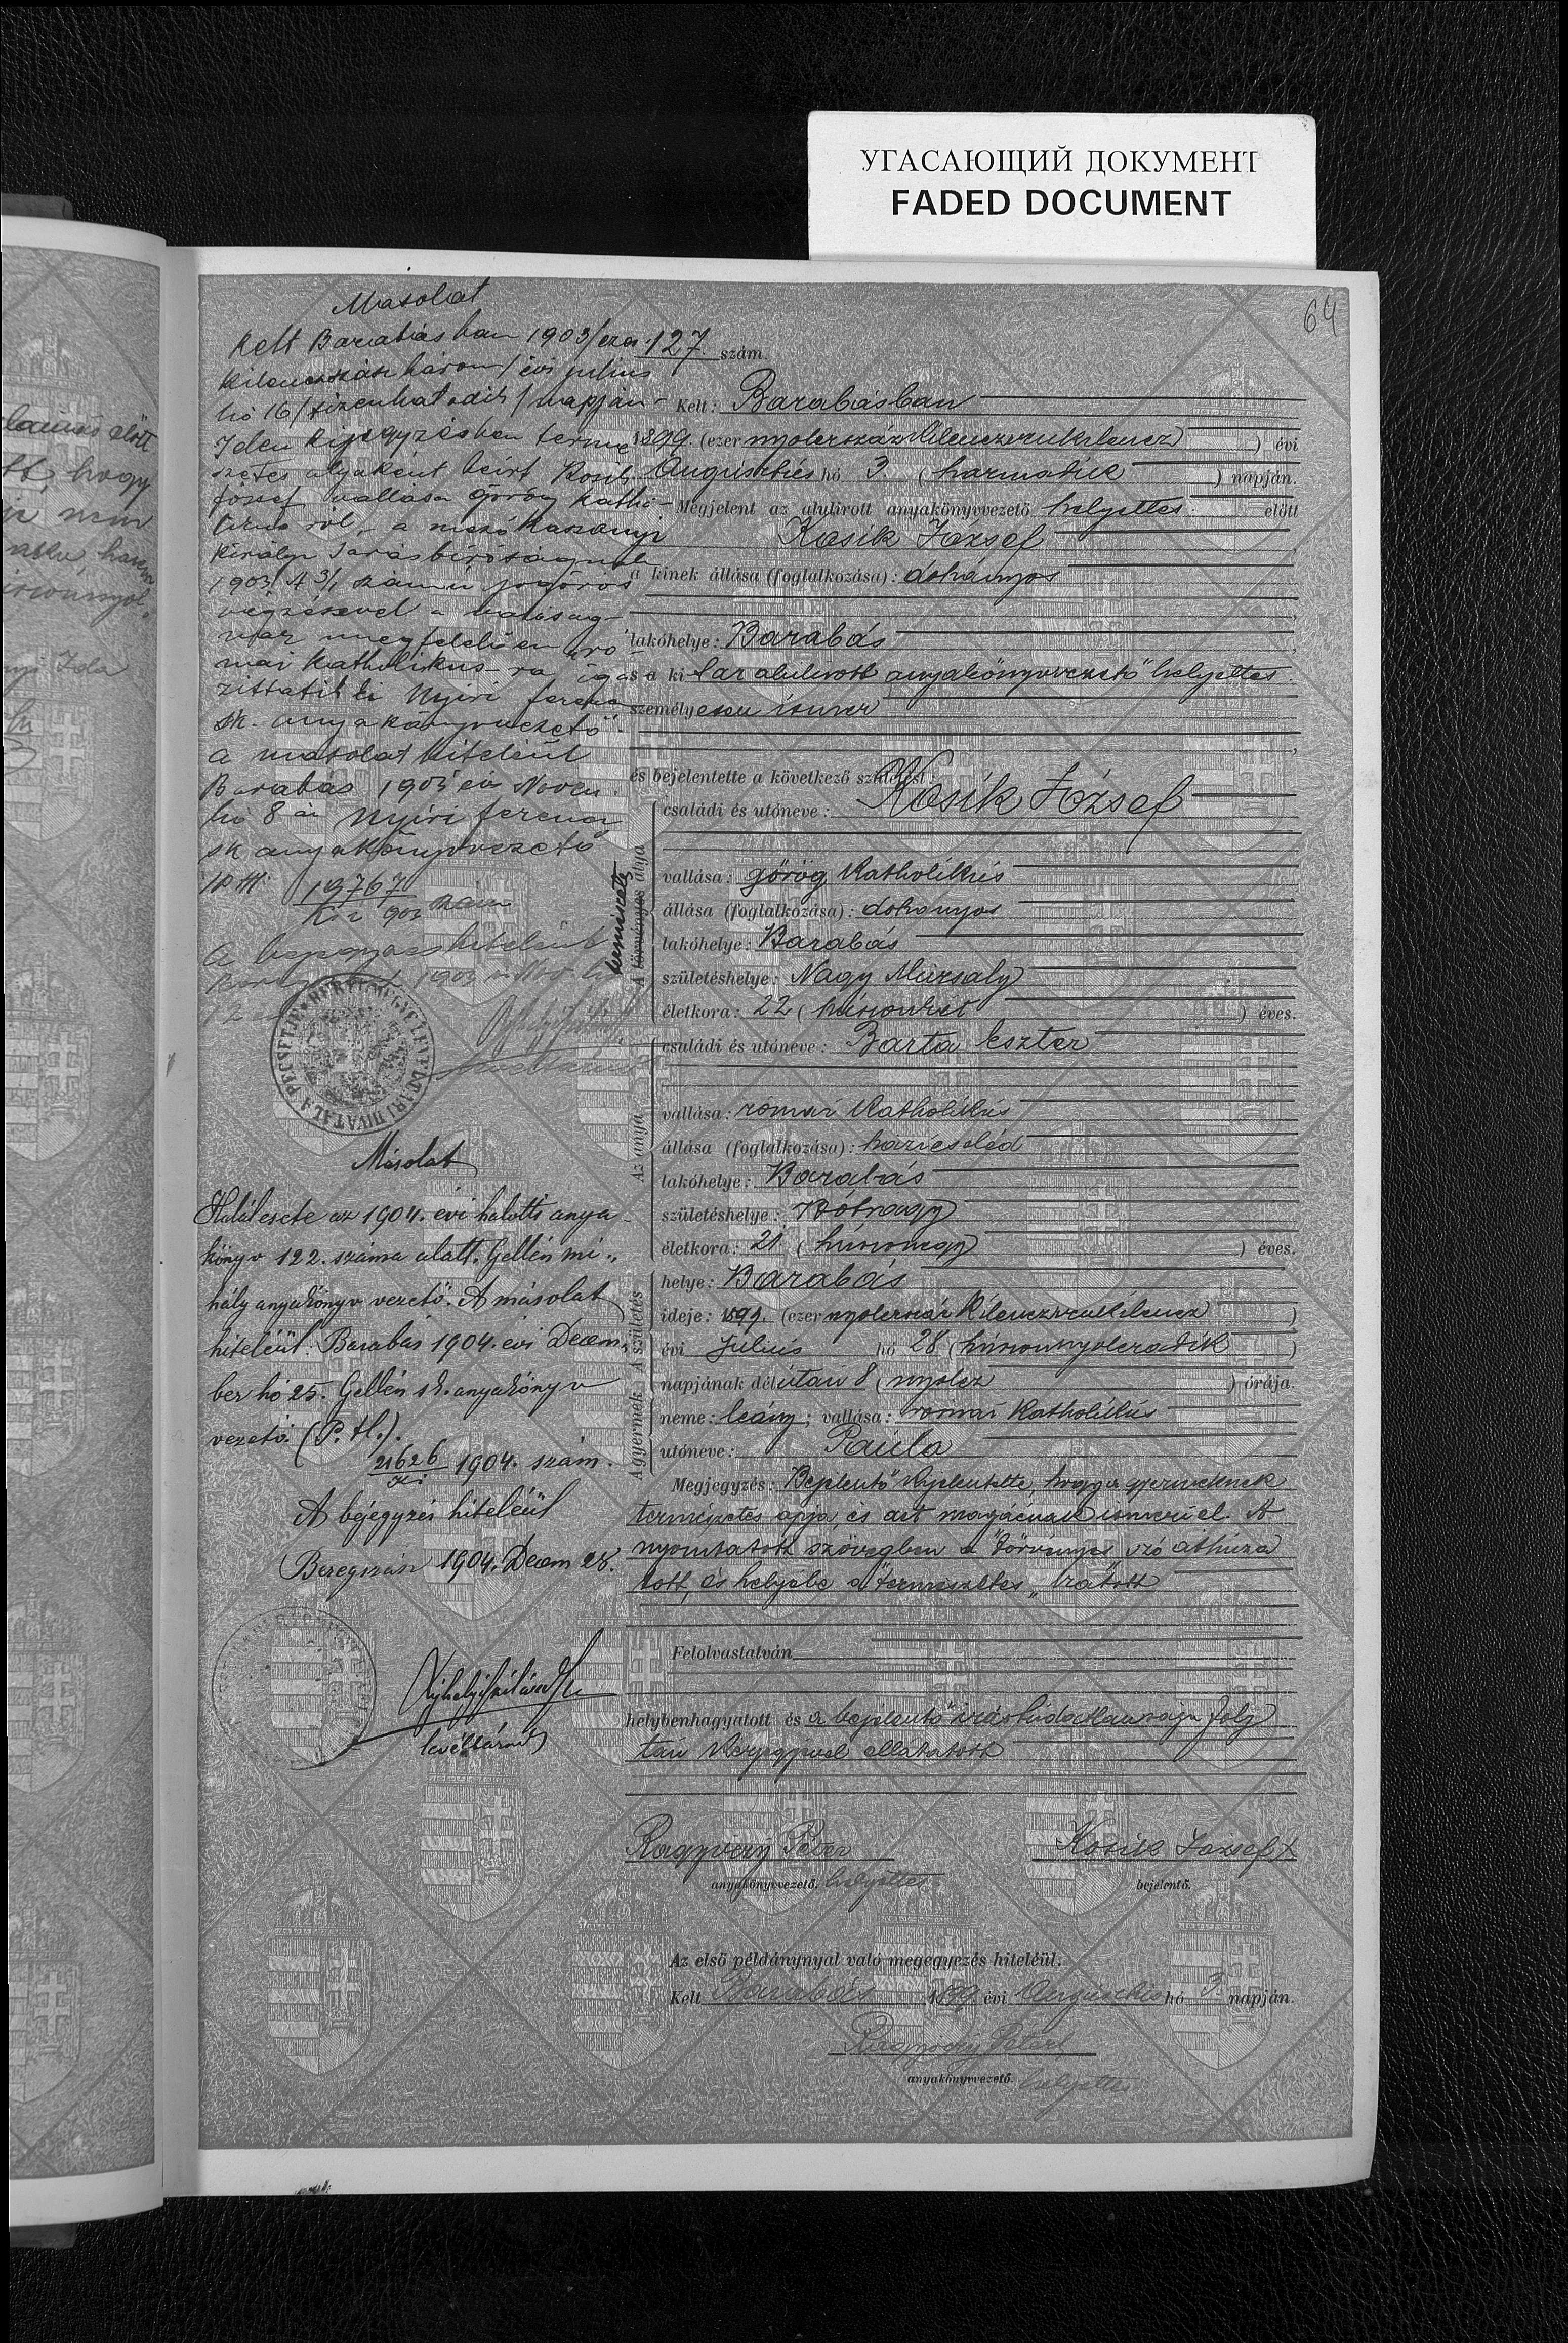 УГАСАЮЩИЙ ДОКУМЕНТ
FADED DOCUMENT
64
Masolat
Kelt Barabásban 1903/ezer
kilenczszáz három/ évi julius
hó 16/tizenhatodik/ napján
Jelen bejegyzésben termé
szetes atyaként beírt Kosik
József vallása görög kathó
licus ról a mező kaszonyi
királyi Járásbiróságnak
1903 számú jogerős
végzésével a valóság
nak megfelelően ró
mai katholikus ra iga
zittatik ki Nyiri Ferencz
sk. anyakönyvvezető
a masolat hiteléül
Barabás 1903 évi Novem.
hó 8 án Nyiri Ferencz
sk anyakönyvvezető
19767
903 szám
A bejegyzés hiteléül
1903
Másolat
Halálesete az 1904. évi halotti anya
könyv 122. száma alatt. Gellén Mi„
hály anyakönyv vezető. A másolat
hiteléül. Barabás 1904. évi Decem„
ber hó 25. Gellén sk. anyakönyv
vezető. (P. H.).
21626 1904. szám.
A bejegyzés hiteléül
Beregszász 1904. Decem 28.
levéltárnok
127. szám.
Kelt: Barabásban
1899. (ezer nyolczszáz kilenczvenkilencz) évi
Augusztus hó 3. (harmadik) napján.
Megjelent az alulirott anyakönyvvezető helyettes előtt
Kosik József
a kinek állása (foglalkozása): dohányos
lakóhelye: Barabás
s a ki t az alulirott anyakönyvvezető helyettes
személyesen ismer
és bejelentette a következő születést:
A törvényes atyja
természetes
családi és utóneve: Kosik József
vallása: görög katholikus
állása (foglalkozása): dohányos
lakóhelye: Barabás
születéshelye: Nagy Muzsaly
életkora: 22 (húszonkét) éves.
Az anya
családi és utóneve: Barta Eszter
vallása: romai katholikus
állása (foglalkozása): házicseléd
lakóhelye: Barabás
születéshelye: Bótrágy
életkora: 21 (húszonegy) éves.
A születés
helye: Barabás
ideje: 1899. (ezer nyolczszáz kilenczvenkilencz)
évi Julius hó 28 (húszonnyolczadik)
napjának délután 8 (nyolcz) órája.
A gyermek
neme: leány; vallása: romai katholikus
utóneve: Paula
Megjegyzés: Bejelentő kijelentette, hogy a gyermeknek
természetes apja, és azt magáénak ismeri el. A
nyomtatott szövegben a "törvényes" szó áthúza
tott, és helyebe a "természetes" iratott
Felolvastatván
helybenhagyatott és a bejelentő irástudatlansága foly
tán kézjegyével ellátatott
Ragyvezy Péter
anyakönyvvezető. helyettes
Kosik József X
bejelentő.
Az első példánynyal való megegyezés hiteléül.
Kelt Barabás 1899. évi Augusztus hó 3 napján.
anyakönyvvezető. helyettes